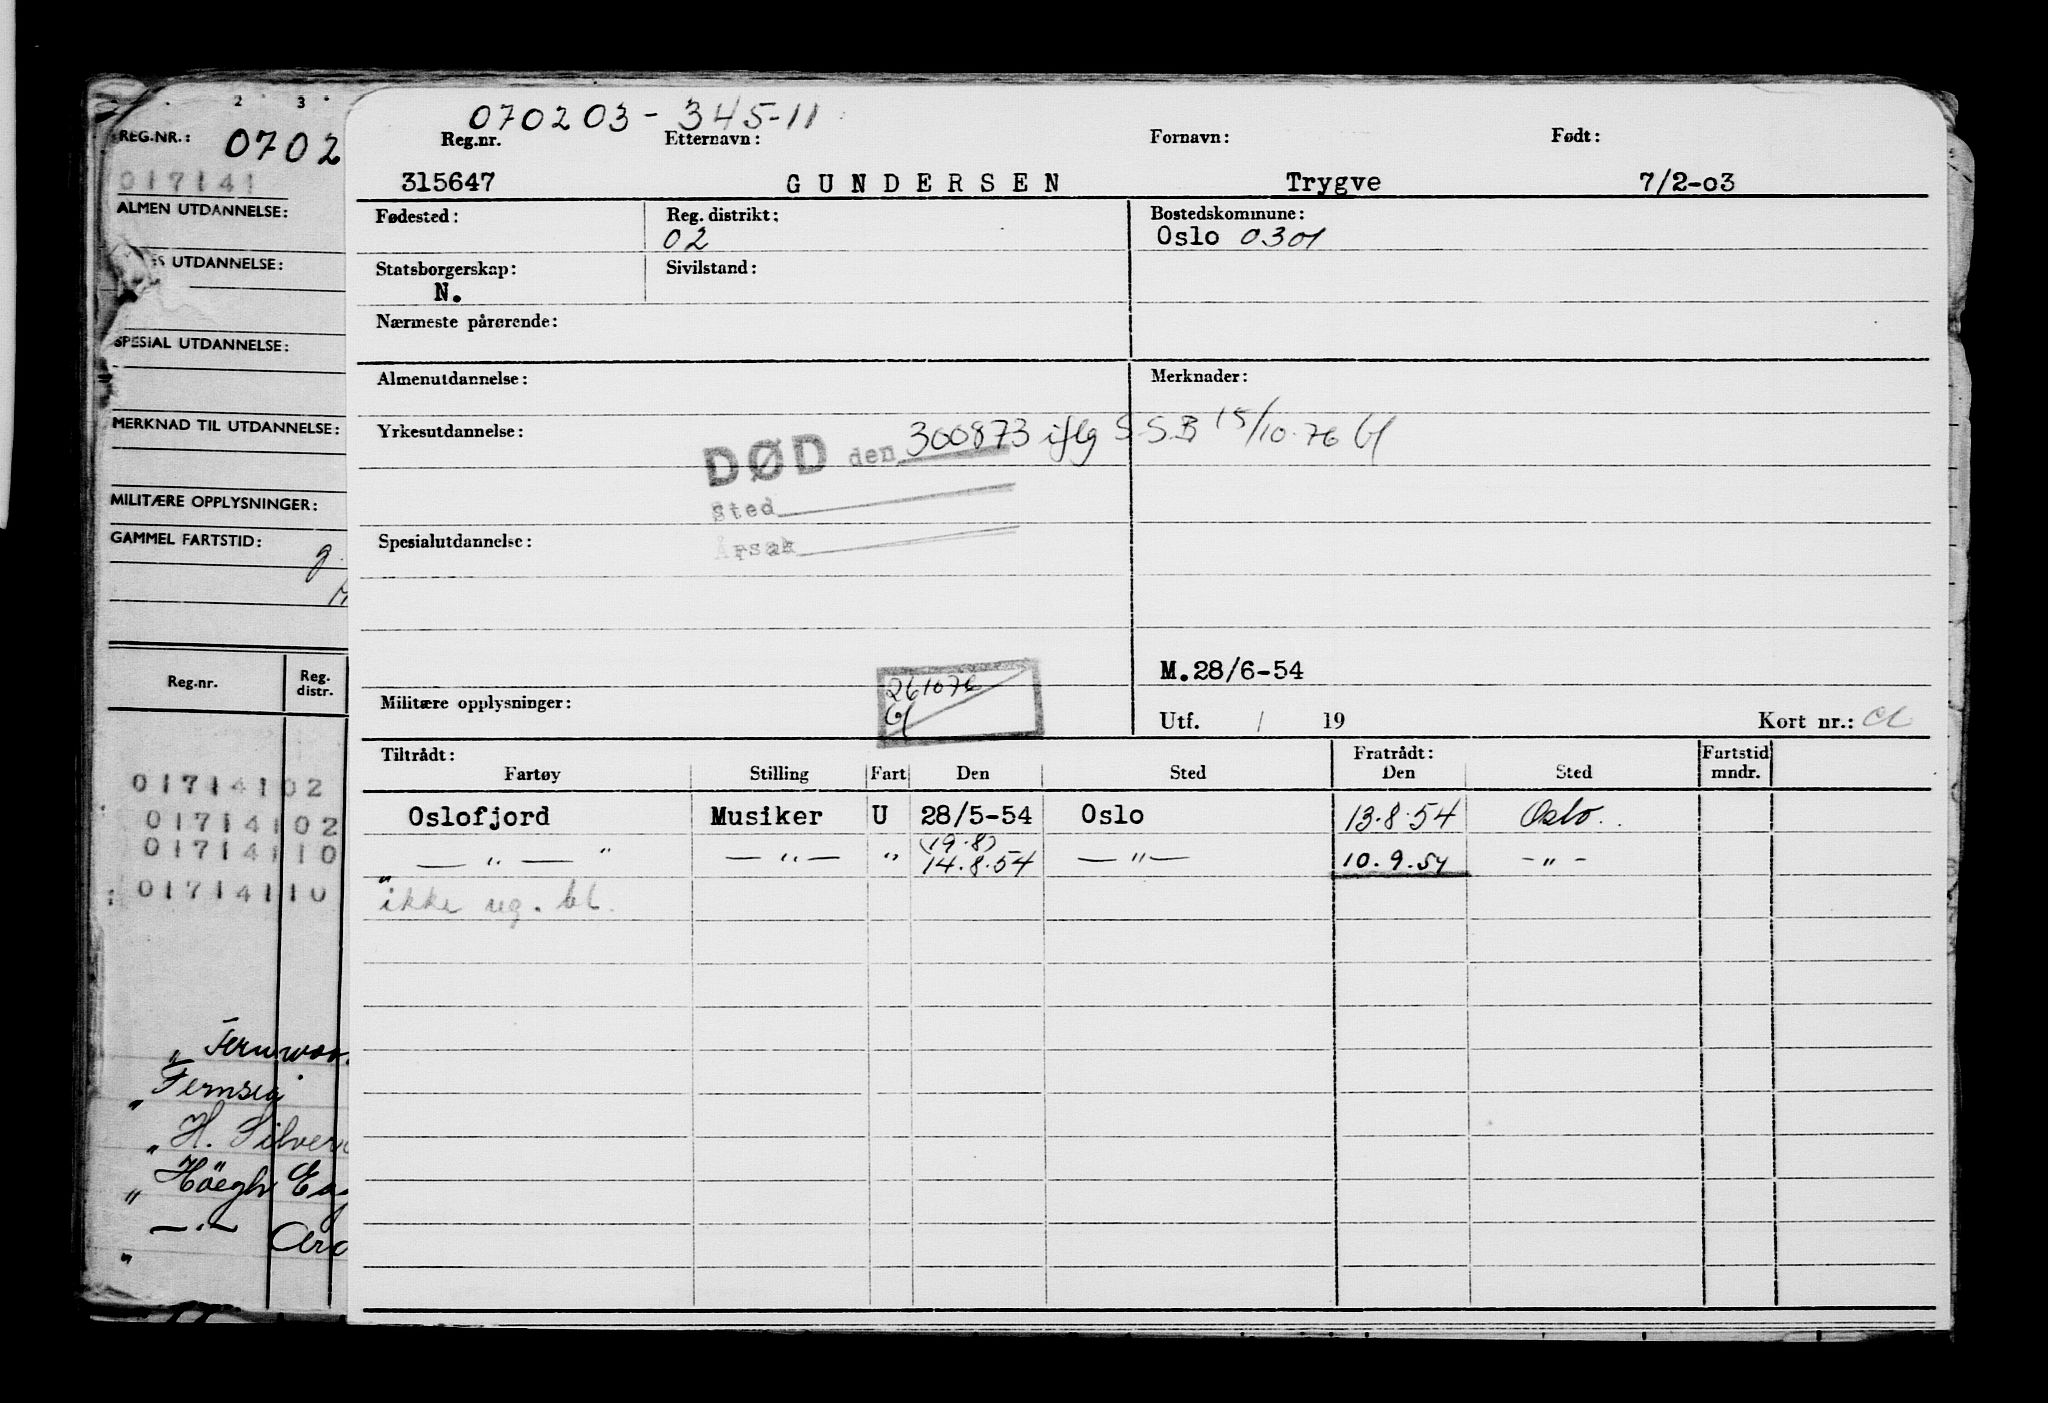 2 3
REG.NR.: 0702
017141
ALMEN UTDANNELSE:
UTDANNELSE:
SPESIAL UTDANNELSE:
MERKNAD TIL UTDANNELSE:
MILITÆRE OPPLYSNINGER:
GAMMEL FARTSTID:
Reg.nr. Reg. distr.
01714102
01714102
01714110
01714110
" Fernsea
" H. Silver
" Höegh
" —"—
070203-345-11
Reg.nr. Etternavn: Fornavn: Født:
315647 GUNDERSEN Trygve 7/2-03
Fødested: Reg. distrikt: Bostedskommune:
02 Oslo 0301
Statsborgerskap: Sivilstand:
N.
Nærmeste pårørende:
Almenutdannelse: Merknader:
Yrkesutdannelse:
DØD den 300873 iflg S.S.B 15/10-76
Sted
Årsak
Spesialutdannelse:
M.28/6-54
261076
Militære opplysninger:
Utf. / 19 Kort nr.:
Tiltrådt: Fratrådt: Fartstid
Fartøy Stilling Fart Den Sted Den Sted mndr.
Oslofjord Musiker U 28/5-54 Oslo 13.8.54 Oslo.
(19.8)
" —"— " —"— " 14.8.54 —"— 10.9.54 -"-
ikke reg. bl.